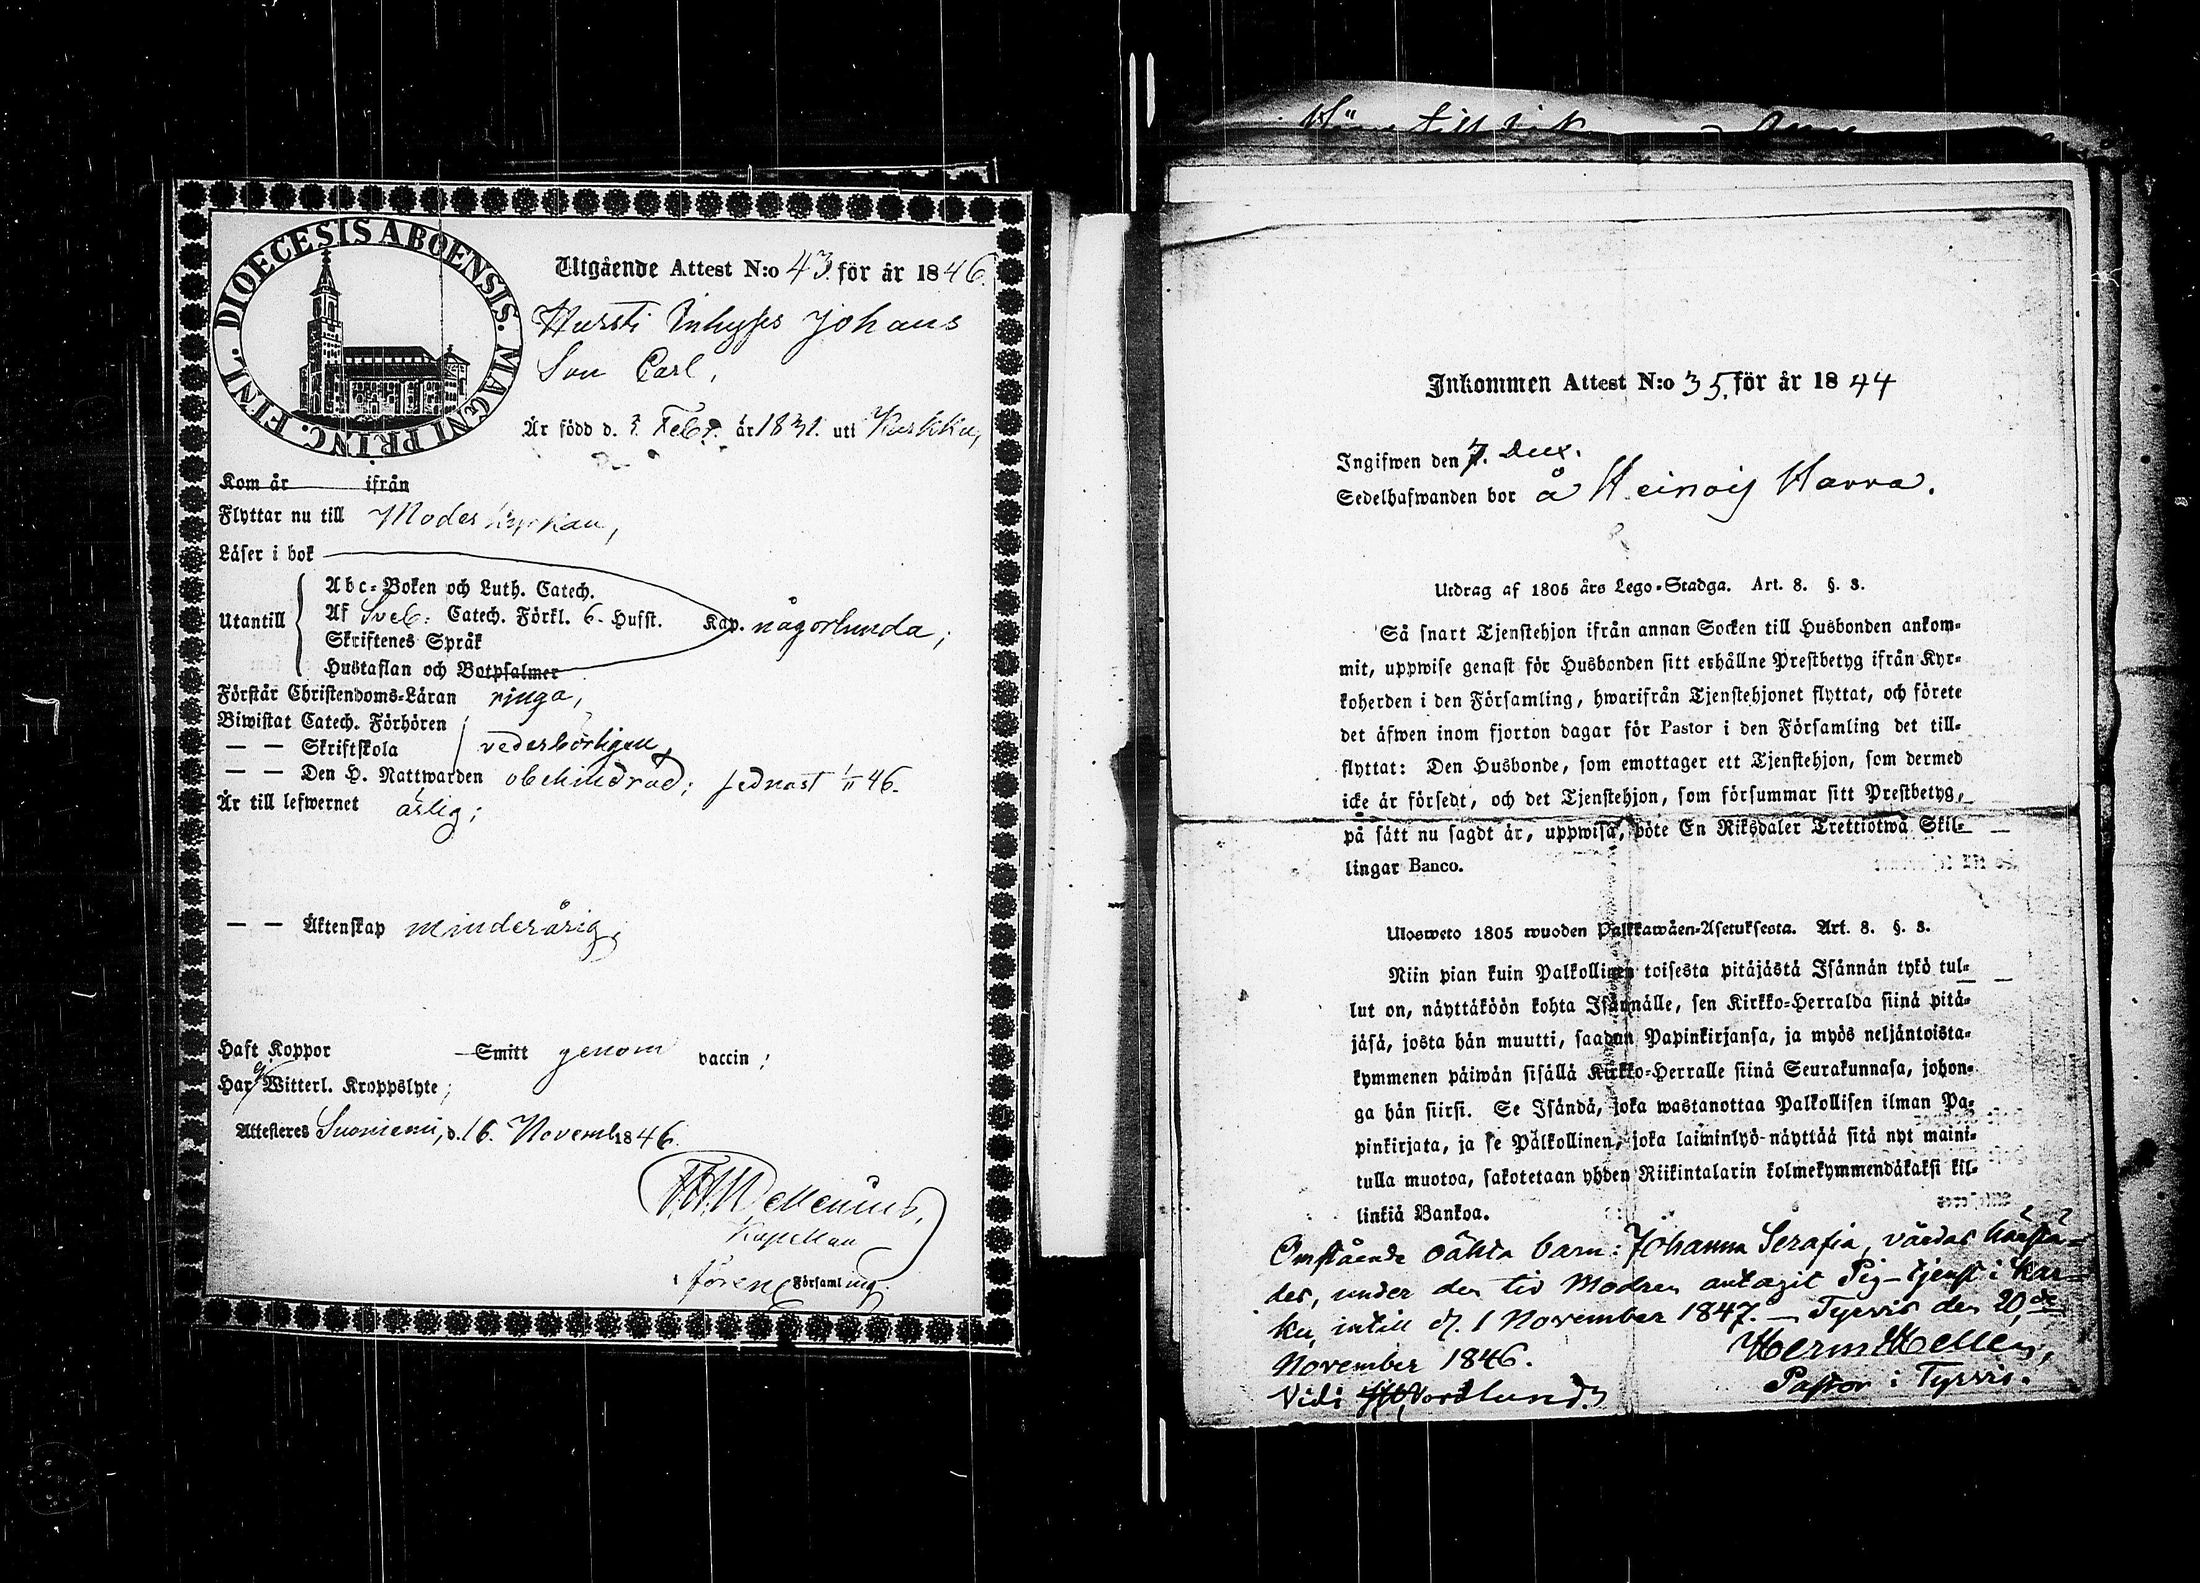 DIOECESIS ABOENSIS. MAGNI PRINC. FINL.
Utgående Attest N:o 43. för år 1846.
Hursti Inhyses Johans
Son Carl,
Är född d. 3. Febr. år 1831. uti Karkku,
Kom år ifrån
Flyttar nu till Moderkyrkan,
Läser i bok
Utantill
Abc-Boken och Luth. Catech.
Af Sveb: Catech. Förkl. 6- Hufst. Kap. någorlunda;
Skriftenes Språk
Hustaflan och Botpsalmer
Förstår Christendoms-Läran ringa,
Biwistat Catech. Förhören
— — Skriftskola vederbörligen,
— — Den H. Nattwarden obehindrad; sednast 1/11 46.
Är till lefwernet ärlig;
— — Äktenskap minderårig,
Haft Koppor Smitt genom vaccin;
Har ej Witterl. Kroppslyte;
Attesteres Suoniemi, d. 16. Novemb. 1846.
Mellenius,
Kapellan
Församling.
Inkommen Attest N:o 35. för år 1844
Ingifwen den 7. Dec.
Sedelhafwanden bor å Heinois Harra.
Utdrag af 1805 års Lego-Stadga. Art. 8. §. 3.
Så snart Tjenstehjon ifrån annan Socken till Husbonden ankom-
mit, uppwise genast för Husbonden sitt erhållne Prestbetyg ifrån Kyr-
koherden i den Församling, hwarifrån Tjenstehjonet flyttat, och förete
det äfwen inom fjorton dagar för Pastor i den Församling det till-
flyttat: Den Husbonde, som emottager ett Tjenstehjon, som dermed
icke är försedt, och det Tjenstehjon, som försummar sitt Prestbetyg,
på sätt nu sagdt är, uppwisa, böte En Riksdaler Trettiotwå Skil-
lingar Banco.
Ulosweto 1805 wuoden Palkkawäen-Asetuksesta. Art. 8. §. 3.
Niin pian kuin Palkollinen toisesta pitäjästä Isännän tykö tul-
lut on, näyttäköön kohta Isännälle, sen Kirkko-Herralda siinä pitä-
jäsä, josta hän muutti, saadun Papinkirjansa, ja myös neljäntoista-
kymmenen päiwän sisällä Kirkko-Herralle siinä Seurakunnasa, johon-
ga hän siirsi. Se Isändä, joka wastanottaa Palkollisen ilman Pa-
pinkirjata, ja se Palkollinen, joka laiminlyö näyttää sitä nyt maini-
tulla muotoa, sakotetaan yhden Riikintalarin kolmekymmendäkaksi kil-
linkiä Bankoa.
Omstående oäkta barn: Johanna Serafia, vårdas härstä-
des, under den tid Modren antagit Pig-tjenst i Kar-
ku, intill d. 1 November 1847. — Tyrvis den 20de
November 1846. Herm Hellen,
Vidi Nordlund. Pastor i Tyrvis.